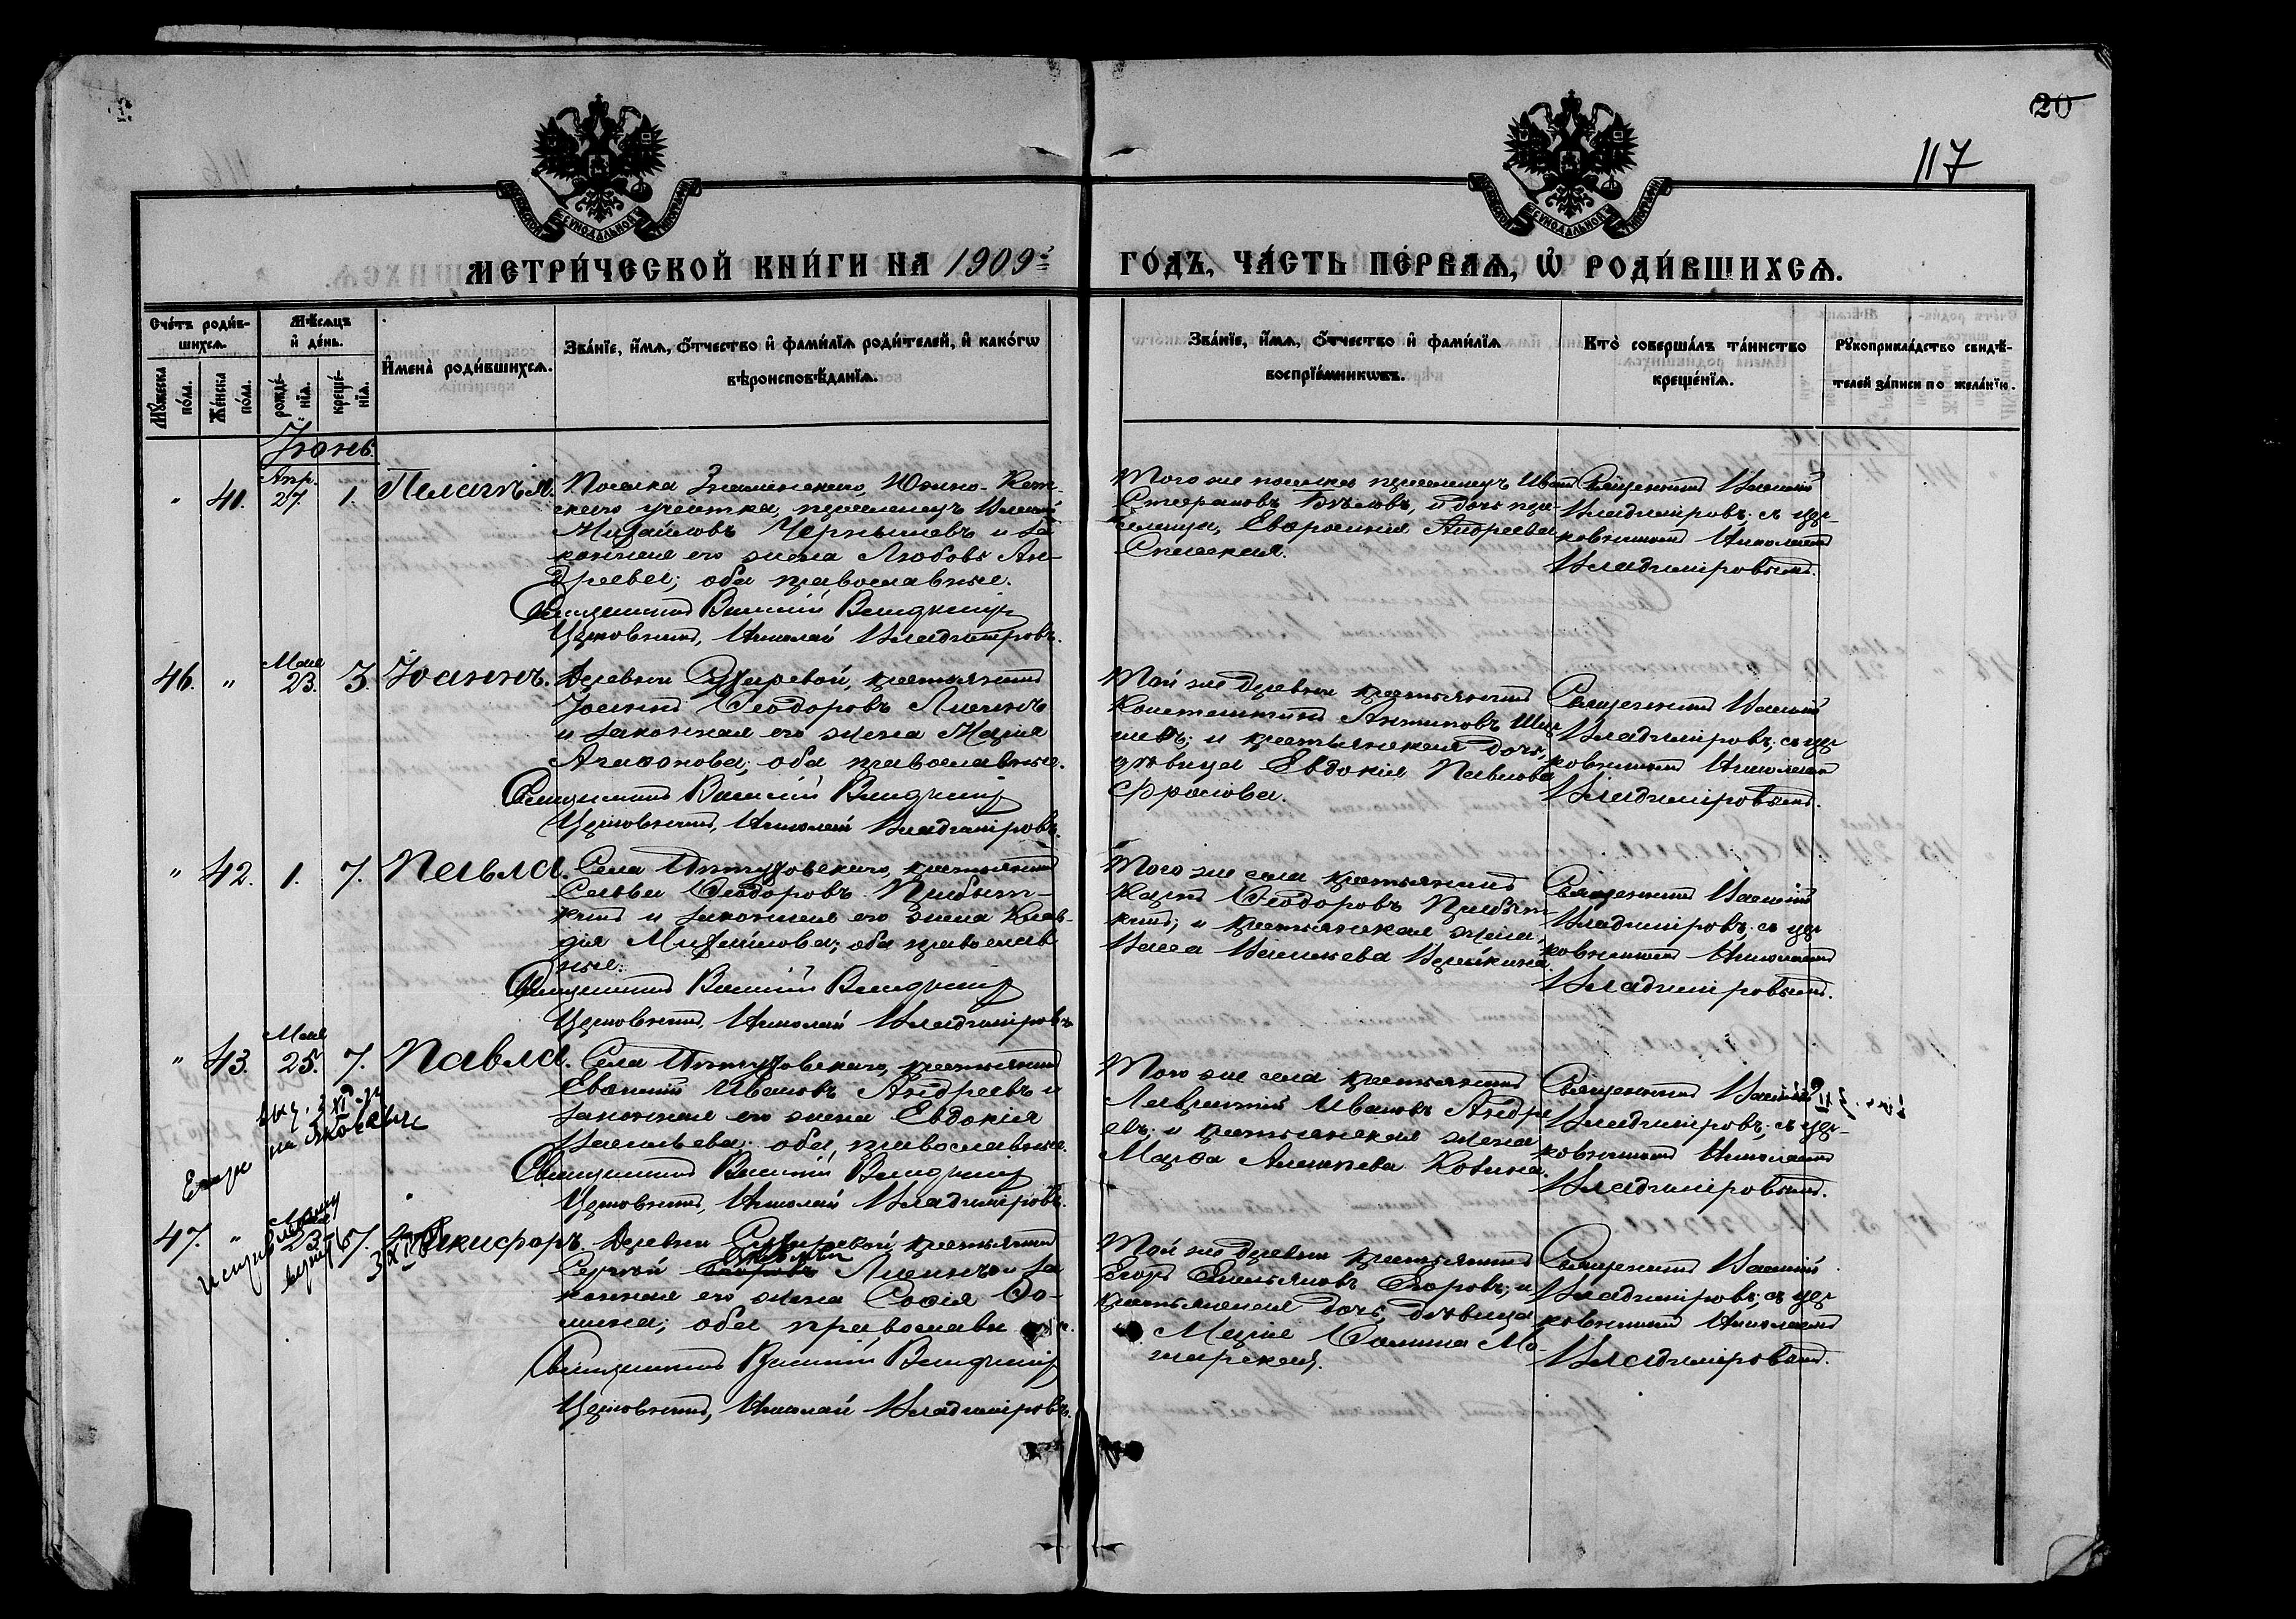 20
117
МЕТРИ́ЧЕСКОЙ КНИ́ГИ НА 1909й
ГО́ДЪ, ЧА́СТЬ ПЕ́РВАѦ, Ѡ РОДИ́ВШИХСѦ.
Сче́тъ роди́в-
шихсѧ.
Мѣ́сѧцъ
и́ де́нь.
Мꙋ́жеска
по́ла.
Же́нска
по́ла.
рожде́-
нїѧ.
креще́-
нїѧ.
И҆мена̀ роди́вшихсѧ.
Зва́нїе, и҆́мѧ, ѻ҆́тчество и҆ фами́лїѧ роди́телей, и҆ како́гѡ
вѣроисповѣ́данїѧ.
Зва́нїе, и҆́мѧ, ѻ҆́тчество и҆ фами́лїѧ
воспрїе́мникѡвъ.
Кто̀ соверша́лъ та́инство
креще́нїѧ.
Рꙋкоприкла́дство свидѣ́-
телей за́писи по жела́нїю.
Іюнь.
" 41. Апр. 27. 1.
Поселка Знаменскаго, Юкно-Кет-
скаго участка, переселенецъ Василій
Михайловъ Чернышевъ и за
конная его жена Любовь Ан-
дреева; оба православные.
Священникъ Василій Владимір
Церковникъ, Николай Владиміровъ.
Того же поселка переселенецъ Иванъ
Стефановъ Бѣловъ, и дочь пере-
селенца, Евфросинія Андреева
Спасская.
Священникъ Василій
Владиміровъ; съ цер-
ковникомъ Николаемъ
Владиміровымъ.
46. " Мая 23. 3. Іоаннъ.
Деревни крестьянинъ
Іоаннъ Ѳеодоровъ Лисинъ
и законная его жена Марія
Агаѳонова; оба православные.
Священникъ Василій Владимір
Церковникъ, Николай Владиміровъ.
Той же деревни крестьянинъ
Константинъ Антиповъ
и крестьянская дочь,
дѣвица Евдокія Павлова
Фролова.
Священникъ Василій
Владиміровъ; съ цер
ковникомъ Николаемъ
Владиміровымъ.
" 42. 1. 7. Павла.
Села крестьянинъ
Савва Ѳеодоровъ Прибыт-
кинъ и законная его жена Клав-
дія Михайлова; оба православ
ные.
Священникъ Василій Владимір
Церковникъ, Николай Владиміровъ
Того же села крестьянинъ
Карпъ Ѳеодоровъ Прибыт-
кинъ; и крестьянская жена,
Васса Васильева
Священникъ Василій
Владиміровъ; съ цер
ковникомъ Николаемъ
Владиміровымъ.
" 43. Мая 25. 7. Павла.
Села крестьянинъ
Евѳимій Ивановъ Андреевъ и
законная его жена Евдокія
Васильева; оба православные.
Священникъ Василій Владимір
Церковникъ, Николай Владиміровъ.
Того же села крестьянинъ
Лаврентій Ивановъ Андре
евъ; и крестьянская жена
Марѳа Алексѣева
Священникъ Василій
Владиміровъ; съ цер-
ковникомъ Николаемъ
Владиміровымъ.
47. " Мая 23. 7. Никифоръ.
Деревни крестьянинъ
Сергѣй Лисинъ и за
конная его жена Софія Ѳо-
мина; оба православн
Священникъ Василій Владимір
Церковникъ, Николай Владиміровъ.
Той же деревни крестьянинъ
Егоръ Емельяновъ Егоровъ; и
крестьянская дочь, дѣвица
Марія Ѳомина
Священникъ Василій
Владиміровъ; съ цер
ковникомъ Николаемъ
Владиміровымъ.